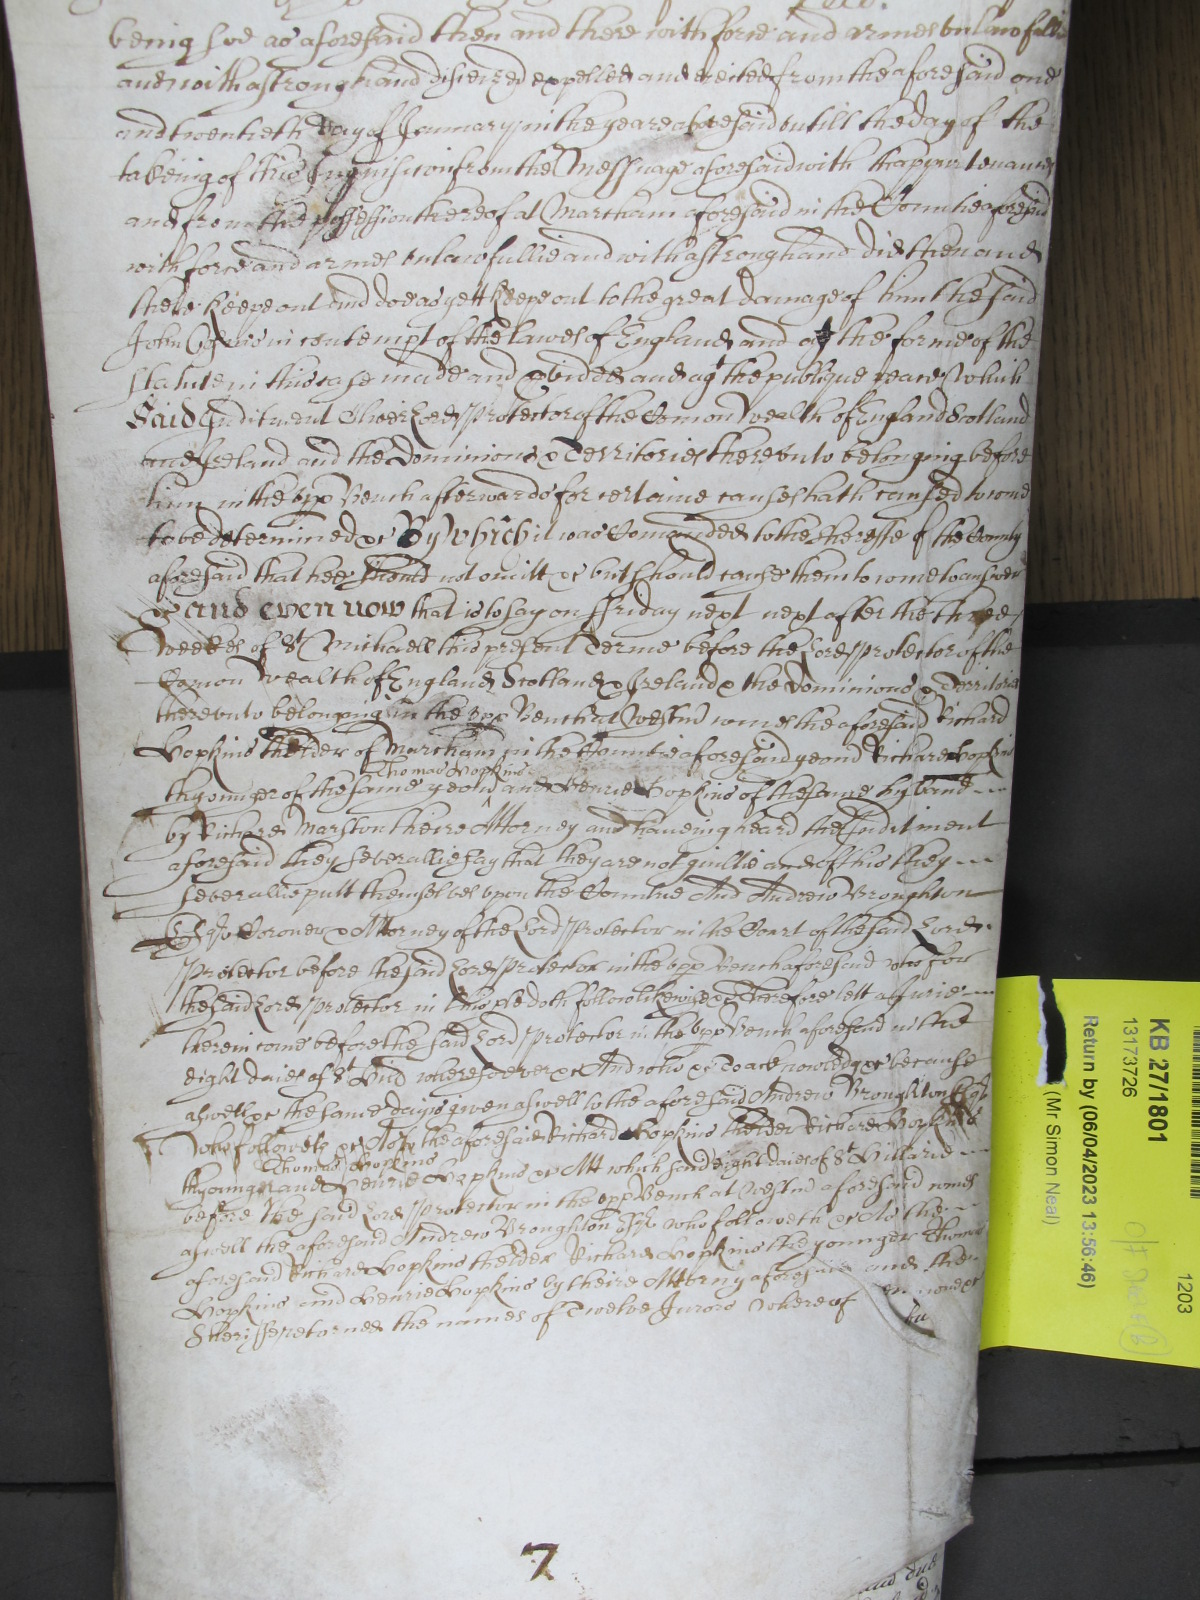 being soe as aforesaid then and there with force and armes unlawfullie
and with a strong hand disseized expelled and eiected from the aforesaid one
and twentieth day of January in the yeare aforesaid untill the day of the
takeing of this Inquisicon from the Messuage aforesaid with thappurtenances
and from the possession thereof at Marcham aforesaid in the Countie aforesaid
with force and armes unlawfullie and with a strong hand did then and
there keepe out and doe as yett keepe out to the great damage of him the said
John in contempt of the lawes of England and agt the forme of the
statute in this case made and pvided and agt the publique peace Which
Said Inditement Oliver Lord Protector of the Comon Wealth of England Scotland
and Ireland and the Dominions & Territories thereunto belonging before
him in the upp Bench afterwards for certaine causes hath caused to come
to be determined &c By Which it was Comanded to the Sheriffe of the County
aforesaid that hee should not omitt &c but should cause them to come to answer
&c And even now that is to say on Friday next next after the three
Weekes of St Michaell this present Terme before the Lord Protector of the
Comon Wealth of England Scotland & Ireland & the Dominions & Territories
thereunto belonging in the upp Bench at Westm comes the aforesaid Richard
Hopkins thelder of Marcham in the Countie aforesaid yeom Richard Hopkins
Thomas Hopkins
thyounger of the same yeom and Henrie Hopkins of the same
by Richard Marston theire Attorney and haveing heard the Inditment
aforesaid they severallie say that they are not guiltie and of this they
severallie putt themselves upon the Countrie And Andrew Broughton
Esqr Coroner & Attorney of the Lord Protector in the Court of the said Lord
Protector before the said Lord Protector in the upp Bench aforesaid who for
the said Lord Protector in this pte doth follow likewise &c Therefore lett a Jurie
therein come before the said Lord Protector in the upp Bench aforesaid in the
eight daies of St wheresoever &c And who &c To acknowledg &c because
aswell &c the same day is given aswell to the aforesaid Andrew Broughton Esqr
who followeth &c As to the aforesaid Richard Hopkins thelder Richard Hopkins
Thomas Hopkins
thyounger and Henrie Hopkins &c Att which said eight daies of St Hillarie
before the said Lord Protector in the upp Bench at Westm aforesaid comes
aswell the aforesaid Andrew Broughton Esqr who followeth &c As the
aforesaid Richard Hopkins thelder Richard Hopkins the younger Thomas
Hopkins and Henrie Hopkins by theire Attorny aforesaid and the
Sheriffe retorned the names of Twelve Jurors Whereof
7
KB 27/1801
13173726
Return by (06/04/2023 13:56:46)
(Mr Simon Neal)
1203